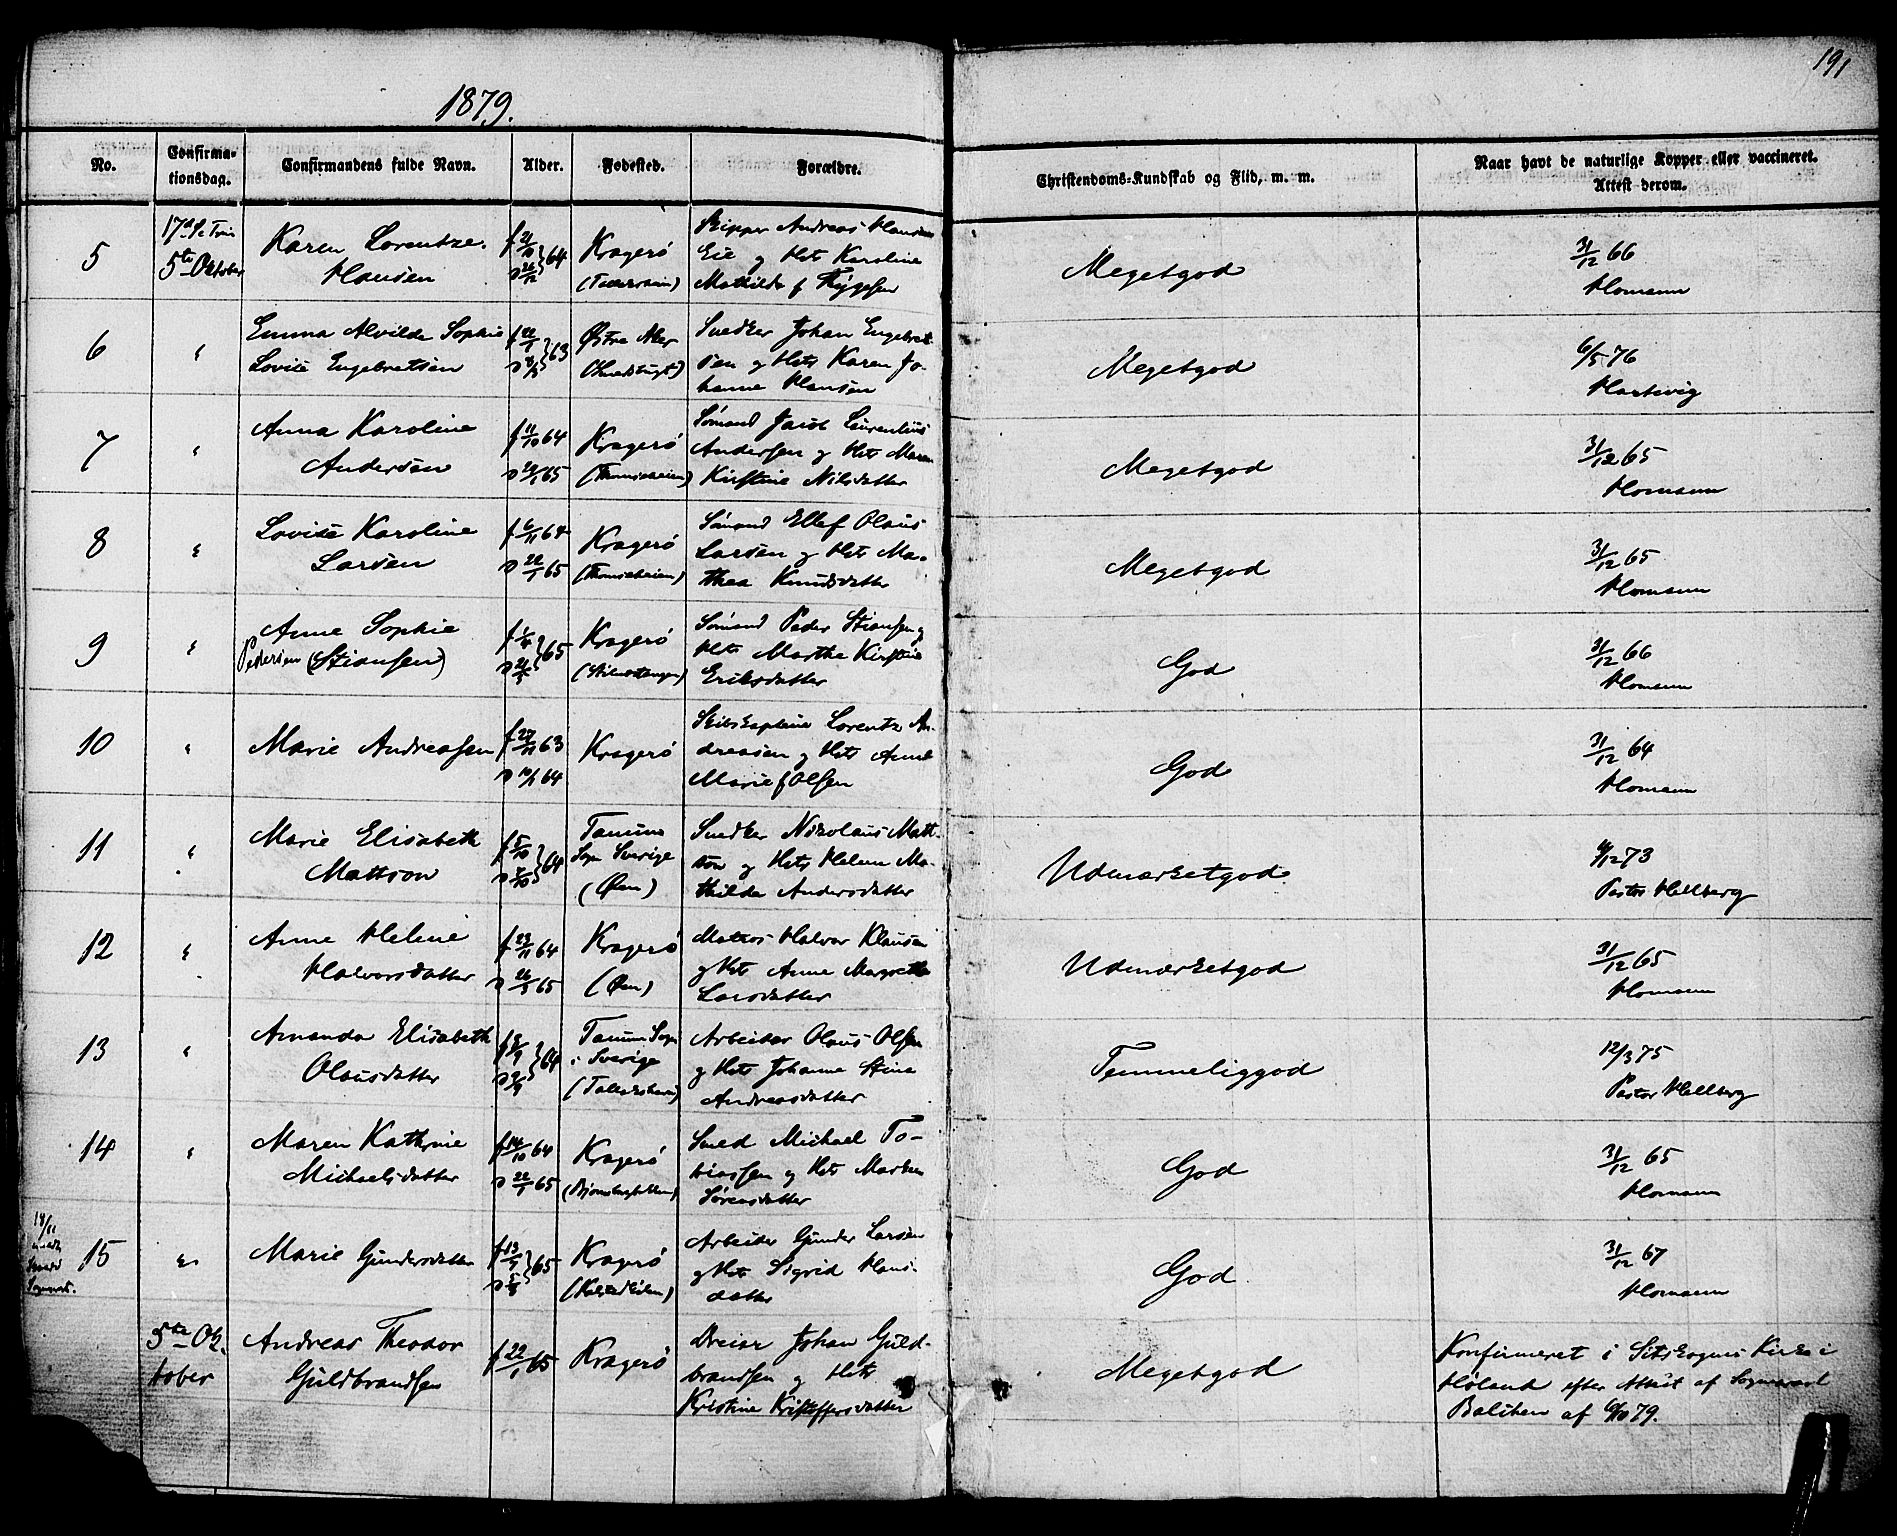 191
1879.
No.
Confirma-
tionsdag.
Confirmandens fulde Navn.
Alder.
Fødested.
Forældre.
Christendoms-Kundskab og Flid, m. m.
Naar havt de naturlige Kopper eller vaccineret.
Attest derom.
5
17de S. e. Trin
5te Oktober
Karen Lorentze
Hansen
64
Kragerø
Skipper Andreas Hansen
Eie og Hst Karoline
Mathilde f Thygesen
Megetgod
31/12 66
Homann
6
"
Emma Alvilde Sophie
Lovise Engebretsen
63
Østre Aker
Snedker Johan Engebret
sen og Hst Karen Jo-
hanne Hansen
Megetgod
6/5 76
Hartvig
7
"
Anna Karoline
Andersen
f 11/10 64
65
Kragerø
Sømand Jacob Laurentius
Andersen og Hst Maren
Kirstine Nilsdatter
Megetgod
31/12 65
Homann
8
"
Lovise Karoline
Larsen
f 6/11 64
D 22/1 65
Kragerø
Sømand Ellef Olaus
Larsen og Hst Ma-
thea Knudsdatter
Megetgod
31/12 65
Homann
9
"
Anne Sophie
Pedersen (Stiansen)
65
Kragerø
Sømand Peder Stiansen og
Hst Marthe Kirstine
Eriksdatter
God
31/12 66
Homann
10
"
Marie Andreassen
f 27/11 63
64
Kragerø
Skibskaptein Lorentz An-
dreasen og Hst Anne
Marie f Olsen
God
31/12 64
Homann
11
"
Marie Elisabeth
Mattson
f 5/10
64
Tanums
Sogn Sverige
(Øen)
Snedker Nikolaus Matt-
son og Hst Helene Ma-
thilde Andersdatter
Udmærketgod
73
Pastor Hellberg
12
"
Anne Helene
Halvorsdatter
f 23/11 64
D 26/3 65
Kragerø
(Øen)
Matros Halvor Klausen
og Hst Anne Margrethe
Larsdatter
Udmærketgod
31/12 65
Homann
13
"
Amanda Elisabeth
Olausdatter
64
Tanum Sogn
i Sverige
Arbeider Olaus Olsen
og Hst Johanne Stina
Andreasdatter
Temmeliggod
12/3 75
Pastor Hellberg
14
"
Maren Kathrine
Michaelsdatter
f 14/10 64
D 22/1 65
Kragerø
Smed Michael To-
biassen og Hst Maren
Sørensdatter
God
31/12 65
Homann
15
"
Marie Gundersdatter
65
Kragerø
Arbeider Gunder Larsen
og Hst Sigrid Hans
datter
God
31/12 67
Homann
5te Ok-
tober
Andreas Theodor
Guldbrandsen
f 22/1 65
Kragerø
Dreier Johan Guld-
brandsen og Hst
Kristine Kristoffersdatter
Megetgod
Konfirmeret i Kirke i
Høland efter Attest af Sognepræst
Balchen af 79.